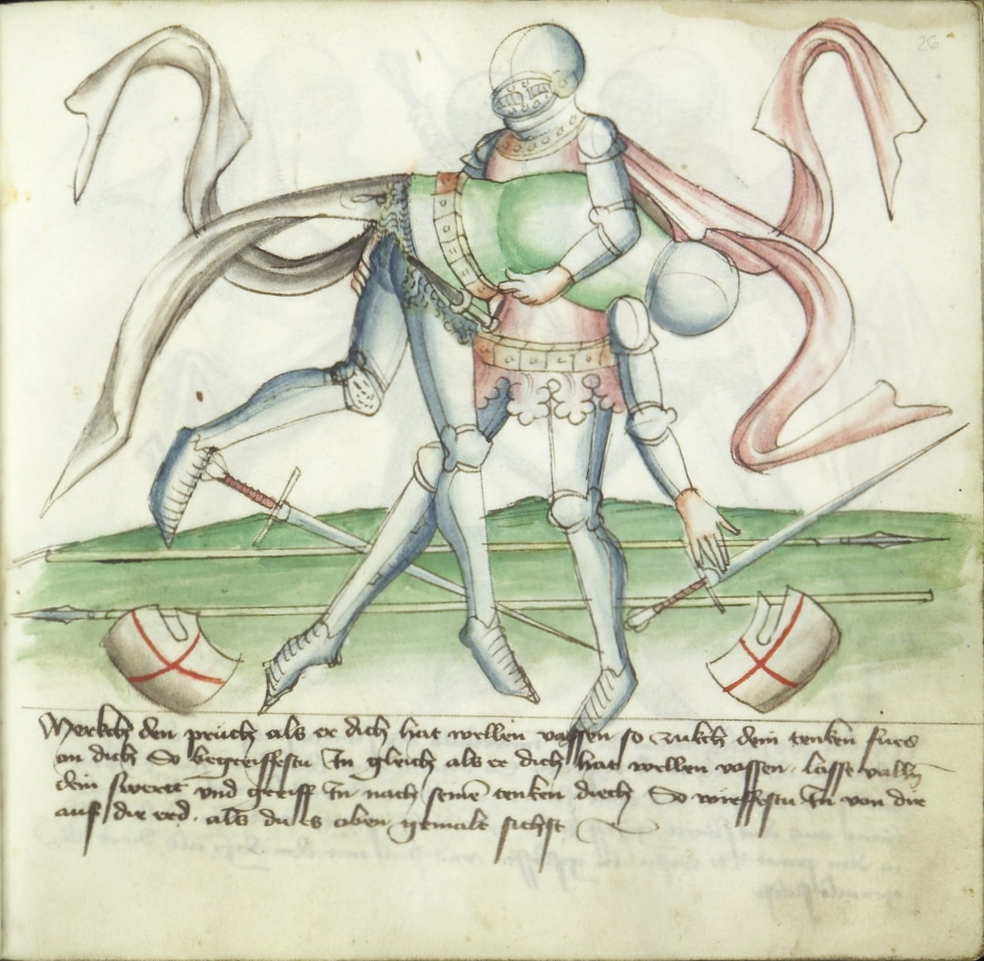 26
Merckch den pruch als er dich hat wellen vassen so zukch dein tenken fues
an dich So begreiffestu In gleich als er dich hat wellen vassen. lasse valln
dein swertt vnd greiff In nach seinē tenken diech So wirffestu In von dir
auf die erd. als du es oben gemalt sichst